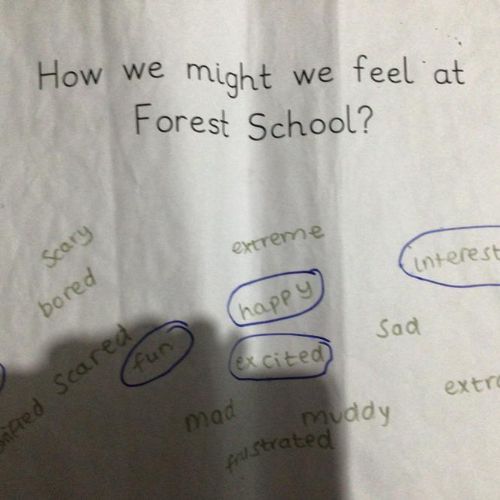 How we might we feel at
Forest School?
scary
extreme
interest
bored
happy
sad
scared
fun
excited
extr
mad
muddy
frustrated